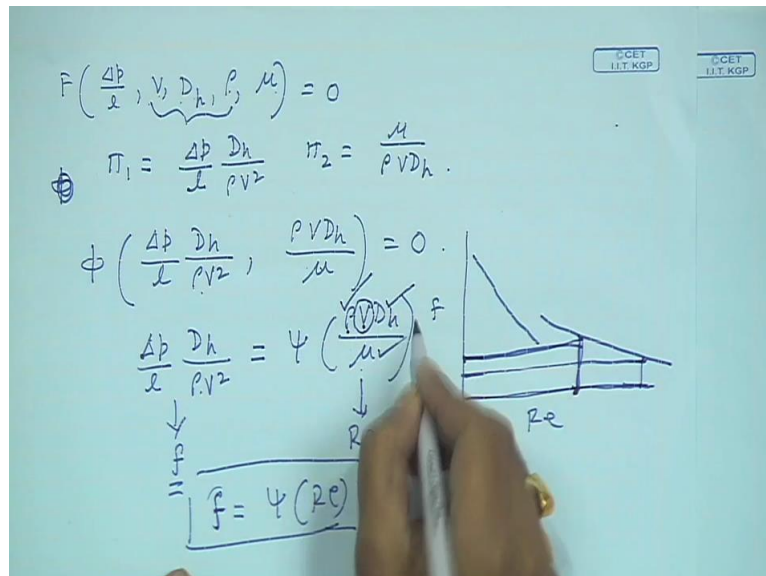 ©CET
I.I.T. KGP
©CET
I.I.T. KGP
F(Δp/l, V, D_h, ρ, μ) = 0
π₁ = Δp/l D_h/ρV² π₂ = μ/ρVD_h.
φ(Δp/l D_h/ρV², ρVD_h/μ) = 0.
Δp/l D_h/ρV² = ψ(ρVD_h/μ)
f
Re
= f
f = ψ(Re)